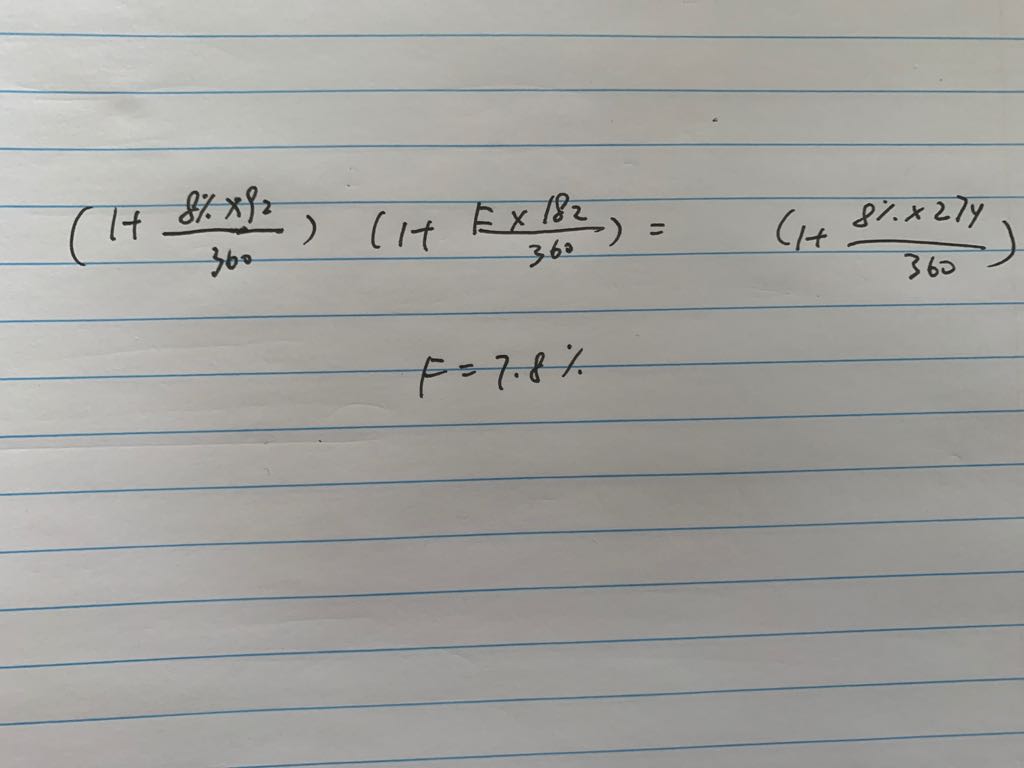 (1+ 8%×92/360) (1+ F×182/360) = (1+ 8%×274/360)
F=7.8%